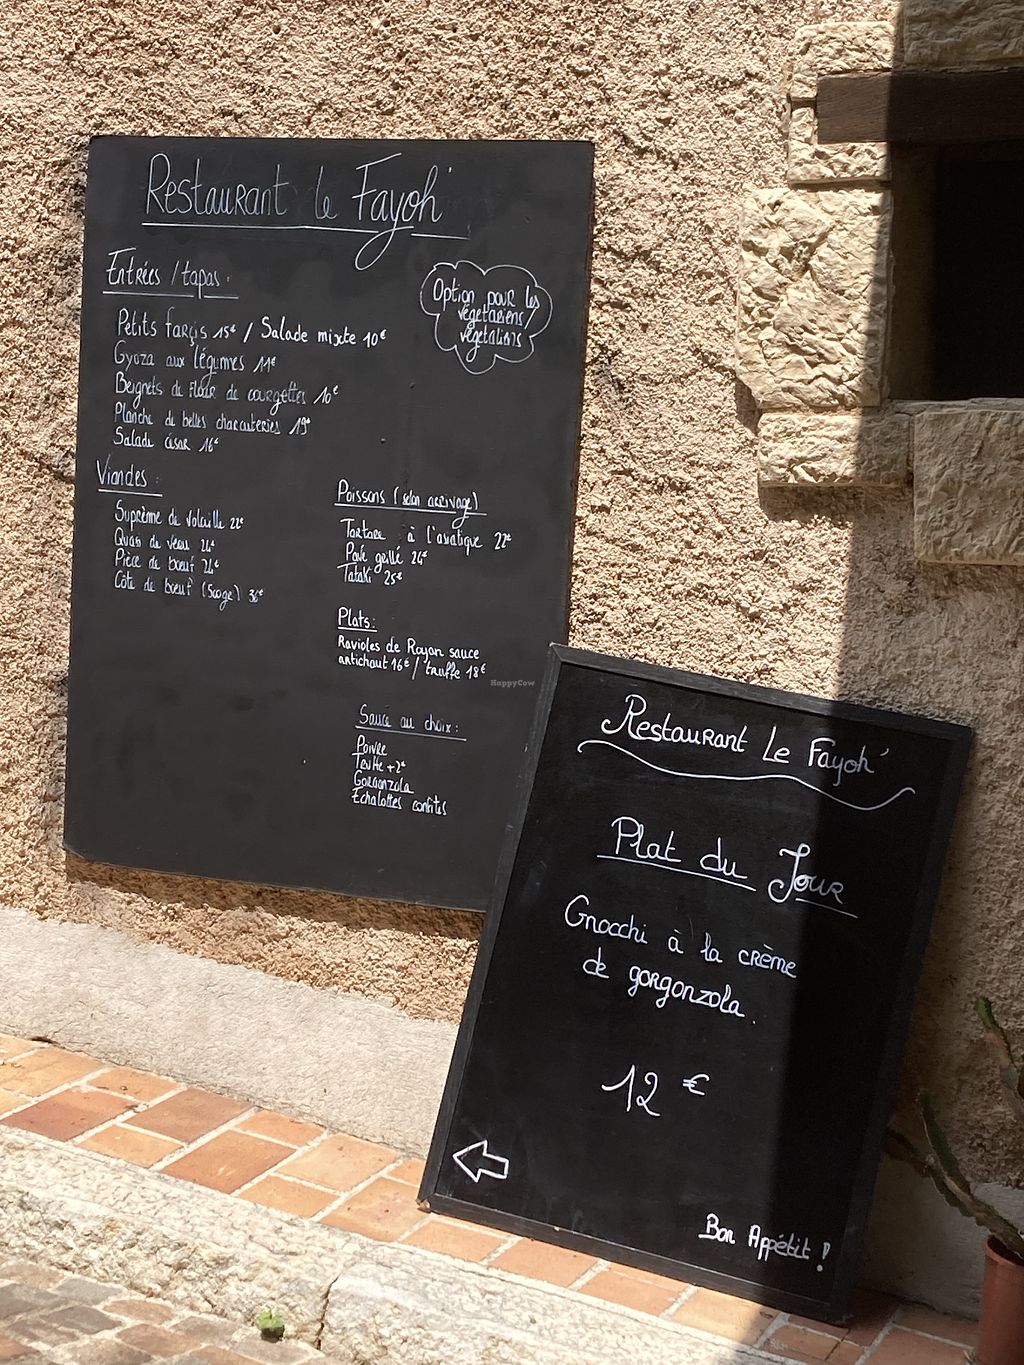 Restaurant le Fayoh'
Entrées / tapas :
Option pour les
végétariens /
végétaliens
Petits farçis 15€ / Salade mixte 10€
Gyoza aux légumes 11€
Beignets de fleur de courgettes 10€
Planche de belles charcuteries 19€
Salade césar 16€
Viandes :
Suprême de volaille 22€
Quasi de veau 24€
Pièce de boeuf 24€
Côte de boeuf (500ge) 36€
Poissons (selon arrivage)
Tartare à l'asiatique 22€
Pavé grillé 24€
Tataki 25€
Plats:
Ravioles de Royan sauce
antichaut 16€ / truffe 18€
Sauce au choix :
Poivre
Truffe +2€
Gorgonzola
Echalottes confites
HappyCow
Restaurant Le Fayoh'
Plat du Jour
Gnocchi à la crème
de gorgonzola.
12 €
Bon Appétit !